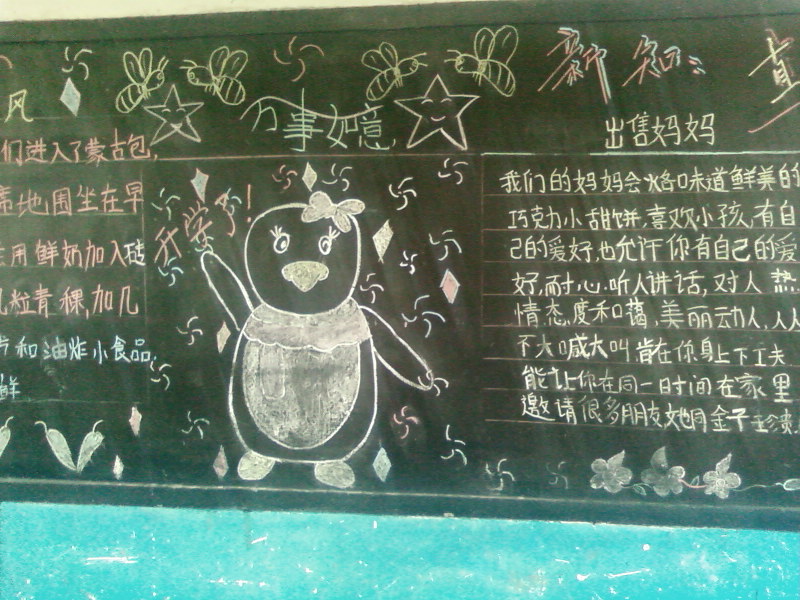 风
们进入了蒙古包,
席地围坐在早
用鲜奶加入砖
几粒青稞,加几
片和油炸小食品
鲜
万事如意
开学了!
新知:
出售妈妈
我们的妈妈会烙味道鲜美的
巧克力小甜饼,喜欢小孩,有自
己的爱好,也允许你有自己的爱
好,耐心听人讲话,对人热
情,态度和蔼,美丽动人,从
不大喊大叫肯在你身上下工夫
能让你在同一时间在家里
邀请很多朋友她同金子